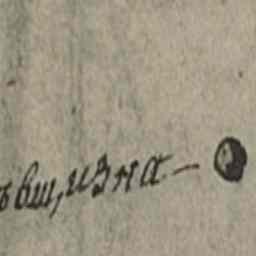 ъвш, изна-